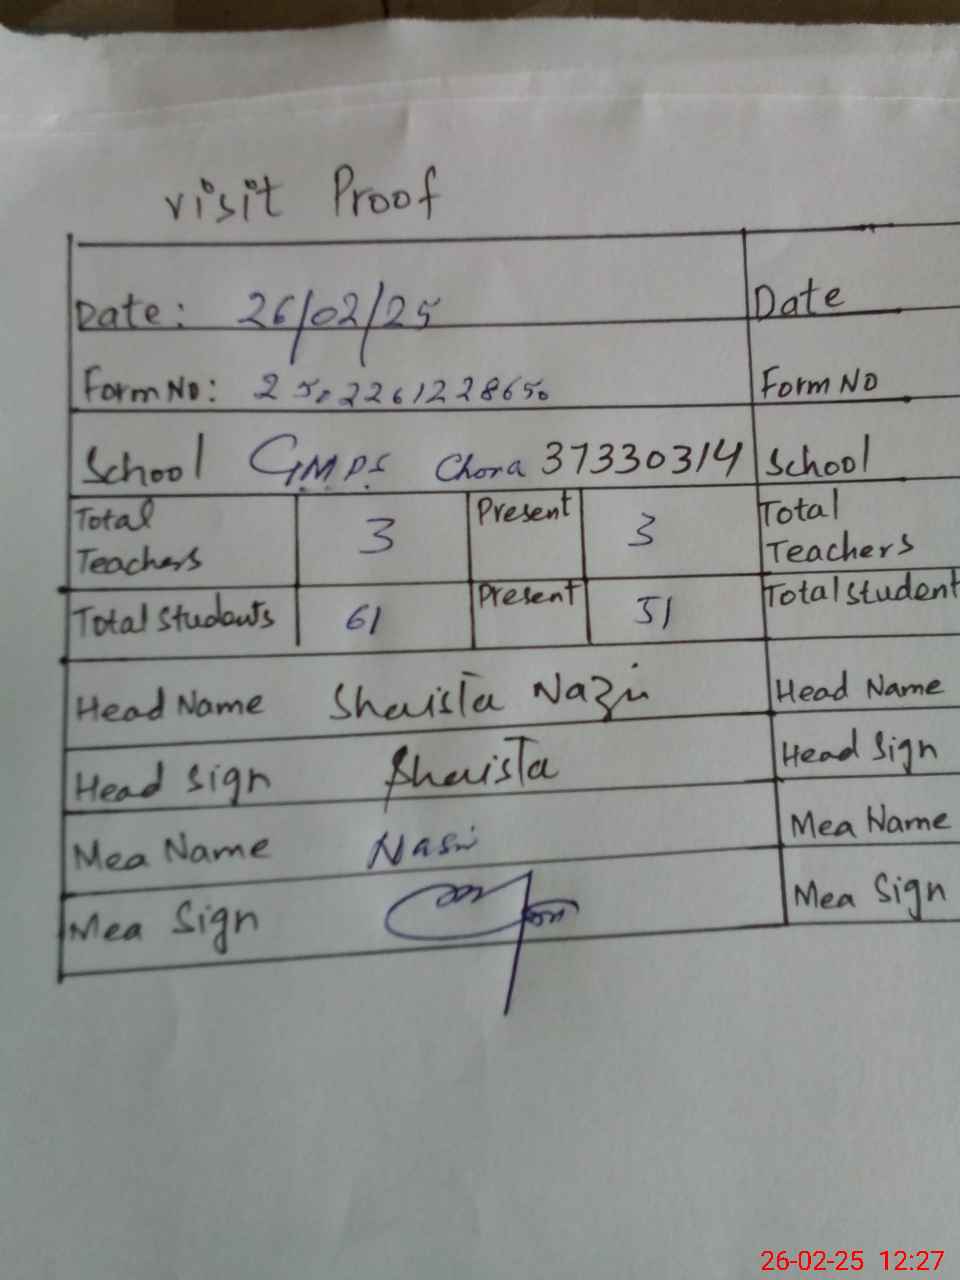 visit Proof
Date: 26/02/25
Date
Form No: 2502261228650
Form NO
School G.M.P.S Chora 37330314
School
Total Teachers 3 Present 3
Total Teachers
Total Students 61 Present 51
Total Student
Head Name Shaista Nazir
Head Name
Head Sign Shaista
Head Sign
Mea Name Nasir
Mea Name
Mea Sign
Mea Sign
26-02-25 12:27